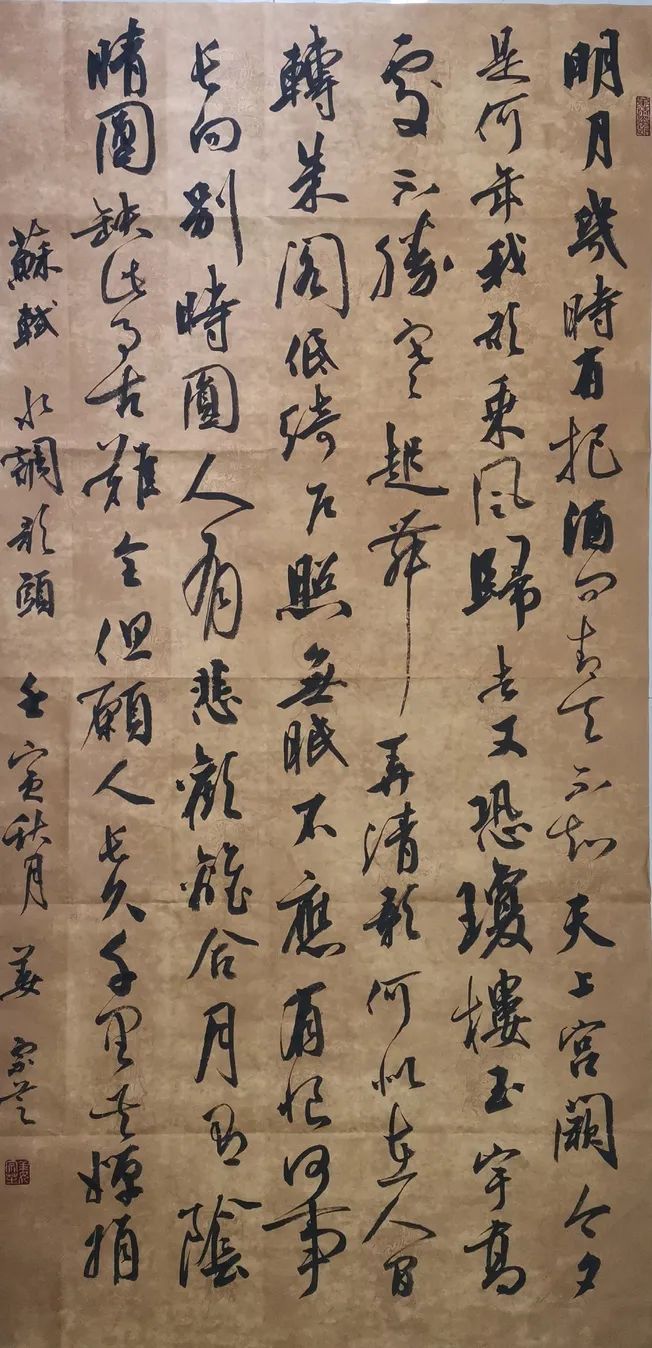 明月幾時有把酒問青天不知天上宮闕今夕
是何年我欲乘風歸去又恐瓊樓玉宇高
處不勝寒起舞弄清影何似在人間
轉朱閣低綺户照無眠不應有恨何事
長向别時圓人有悲歡離合月有陰
晴圓缺此事古難全但願人長久千里共嬋娟
蘇軾 水調歌頭 壬寅秋月 姜